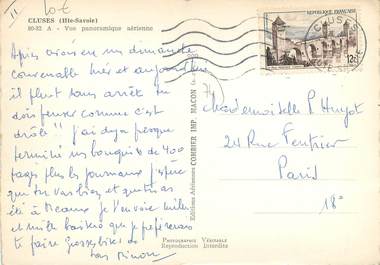 11 10€
CLUSES (Hte-Savoie)
80-32 A - Vue panoramique aérienne
Après avoir eu un dimanche
convenable hier et aujourd'hui
il pleut sans arrêt tu
dois penser comme c'est
drôle !! j'ai déjà presque
terminé un bouquin de 400
pages plus les journaux j'espère
que tu vas bien et que tu as
été à Meaux je t'envoie mille
et mille baisers que je préférerais
te faire Grosses bises de
ton
Editions Aériennes COMBIER IMP. MACON
PHOTOGRAPHIE VÉRITABLE
Reproduction Interdite
CLUSES
REPUBLIQUE FRANÇAISE
12F
Mademoiselle P. Huyot
24 Rue
Paris
18e